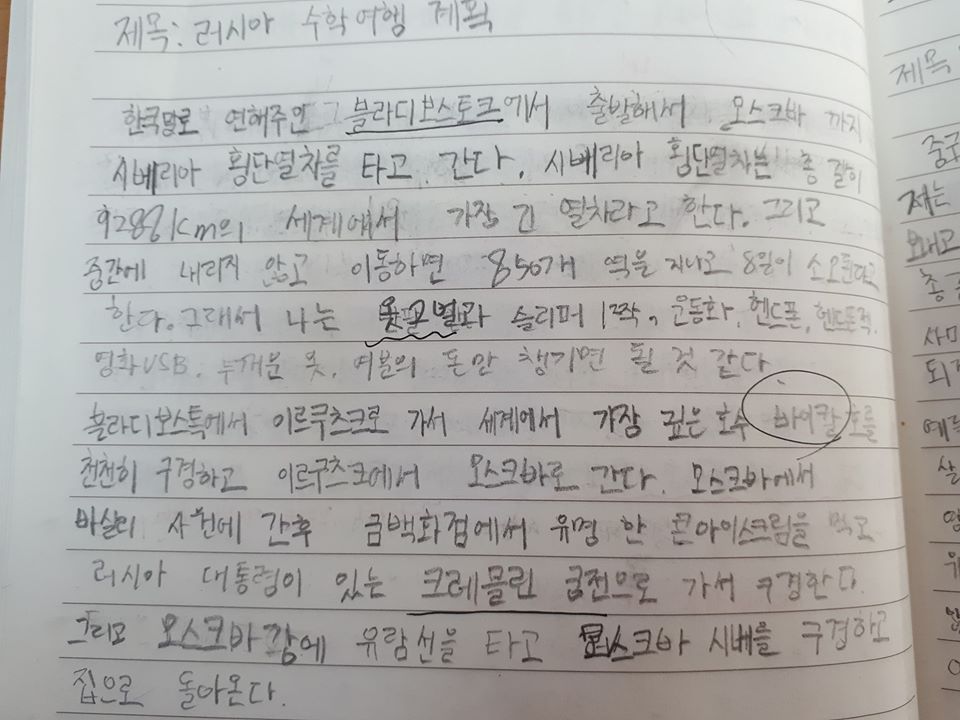 제목: 러시아 수학여행 계획
한국말로 연해주인 블라디보스토크에서 출발해서 모스크바 까지
시베리아 횡단열차를 타고 간다. 시베리아 횡단열차는 총 길이
9288km의 세계에서 가장 긴 열차라고 한다. 그리고
중간에 내리지 않고 이동하면 850개 역을 지나고 8일이 소요된다고
한다. 그래서 나는 슬리퍼 1짝, 운동화, 헨드폰,
영화USB, 두꺼운 옷, 여분의 돈만 챙기면 될 것 같다.
블라디보스톡에서 이르쿠츠크로 가서 세계에서 가장 깊은 호수 바이칼 호를
천천히 구경하고 이르쿠츠크에서 모스크바로 간다. 모스크바에서
바실리 사원에 간후 굼백화점에서 유명 한 콘아이스크림을 먹고
러시아 대통령이 있는 크레믈린 궁전으로 가서 구경한다.
그리고 모스크바강에 유람선을 타고 모스크바 시베를 구경하고
집으로 돌아온다.
제목
중국
저는
보내고
총
사마
퇴